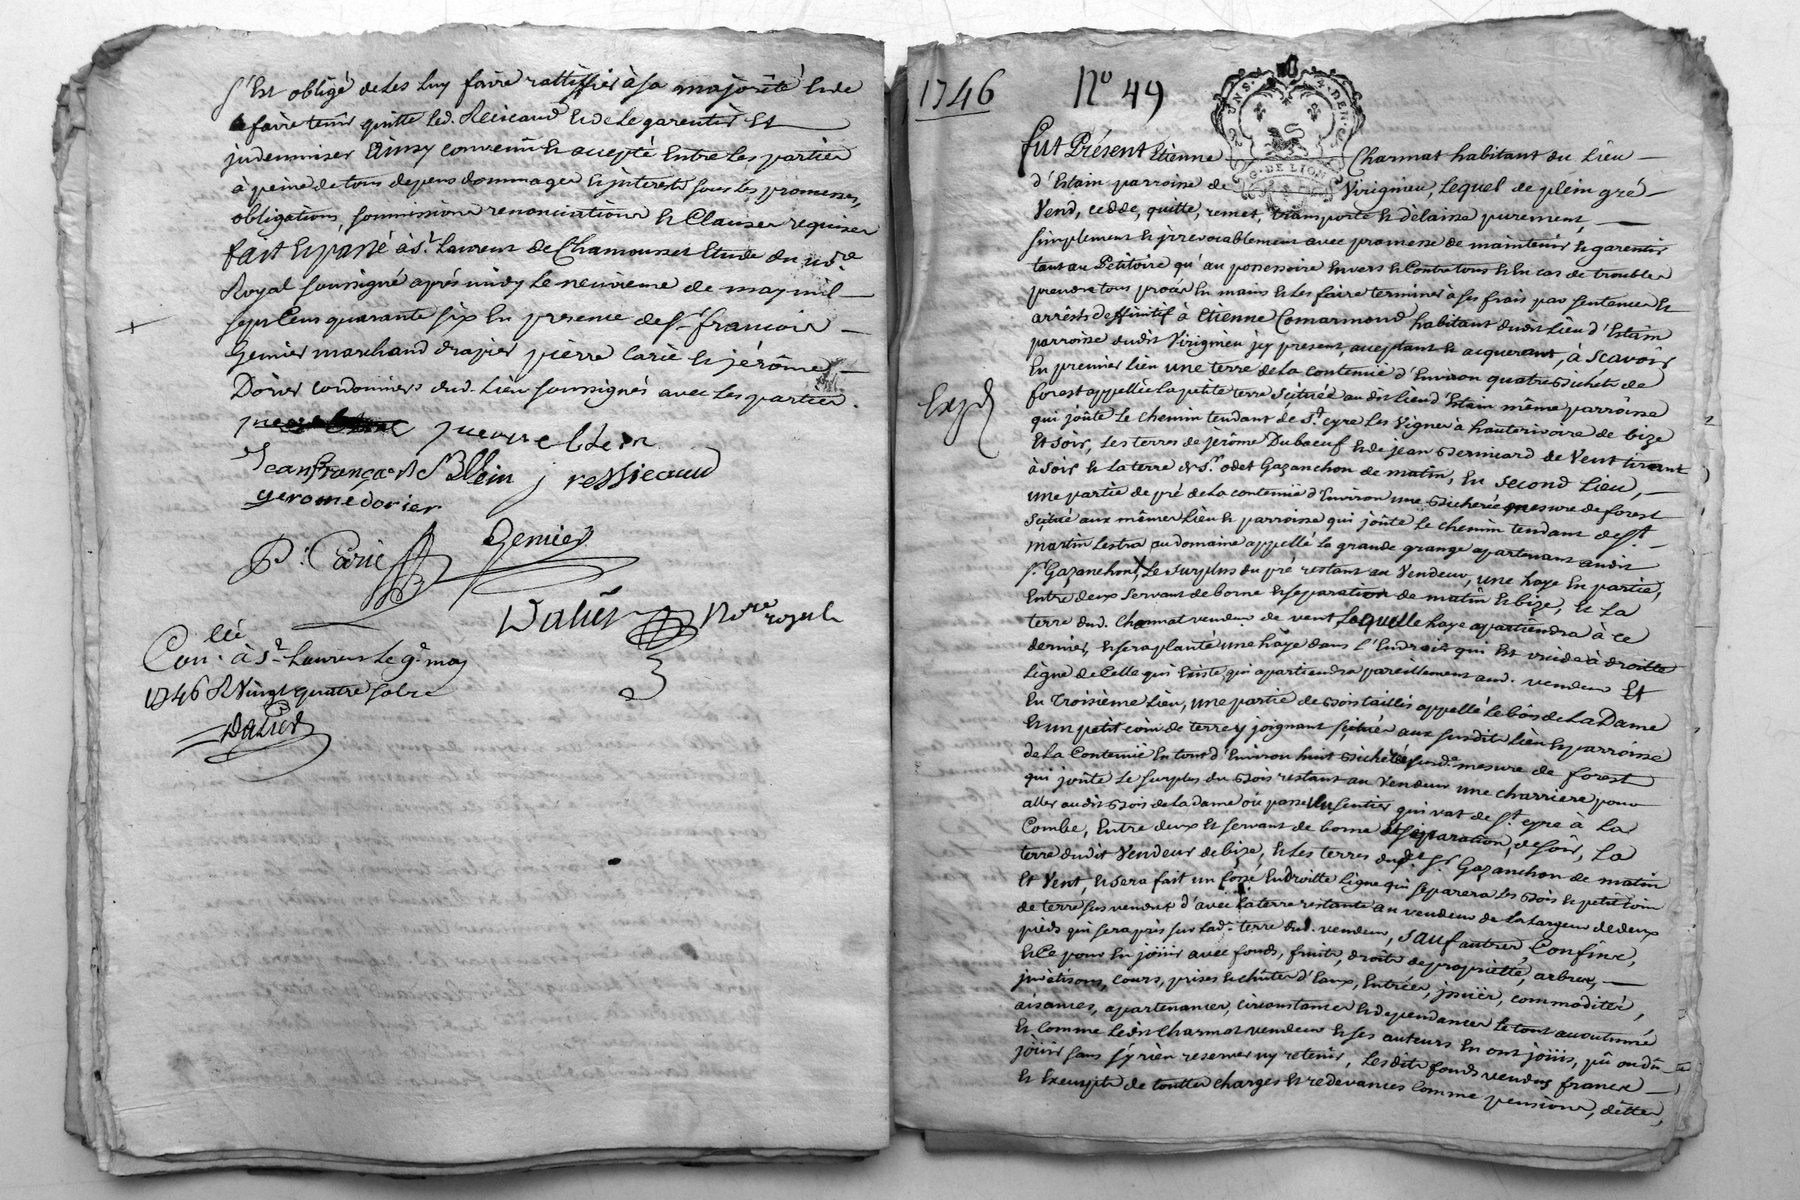 s'est obligé de les luy faire rattiffier à sa majorité et de
faire tenir quitte led. Ressicaud et de le garentir et
indemniser Ainsy convenu et accepté entre les parties
à peine de tous depens dommages et interests sous les promesses,
obligations, soumissions renonciations et Clauses requises
fait et passé à St. Laurent de Chamousset Etude du no.re
Royal soussigné après midy le neuvieme de may mil
sept cens quarante six en presence de Sr. francois
Genier marchand drapier pierre Carie et jérôme
Dorier cordonnier dud. Lieu soussignés avec les parties.
Jean françois Blein j ressicaud
gerome dorier
P. Carie Genier
Dalier No.re royal
Con.lé à St. Laurent le 9e. may
1746 R vingt quatre sols
Dalier
1746 No 49
G. DE LION
fut Présent Etienne Charmat habitant du Lieu
d'Estain parroisse de Virigneu, lequel de plein gré
Vend, cedde, quitte, remet, transporte et délaisse purement,
simplement et irrevocablement avec promesse de maintenir et garentir
tant au Petitoire qu'au possessoire envers et Contre tous et En cas de troubles
prendre tous procès En mains et les faire terminer à ses frais par sentences et
arrêts deffinitif à Etienne Comarmond habitant dudit Lieu d'Estain
parroisse dudit Virigneu icy present, acceptant et acquerant, à scavoir
En premier lieu une terre de la contenüe d'Environ quatre bichets de
forest appellée la petite terre scituée audit Lieu d'Estain même parroisse
Exp d
qui joûte le chemin tendant de St. cyre les Vignes à hauterivoire de bize
Et soir, les terres de jerôme Duboeuf et de jean de Vent tirant
à soir et la terre de Sr. odet Gazanchon de matin, En second Lieu,
une partie de pré de la contenüe d'Environ une bicherée mesure de forest
scitué aux mêmes Lieu et parroisse qui joûte le chemin tendant de St.
martin Lestra au domaine appellé la grande grange apartenant audit
Sr. Gazanchon, Le surplus du pré restant au Vendeur, une haye En partie,
Entre deux servant de borne et separation de matin et bize, et La
terre dud. Charmat vendeur de vent Laquelle haye apartiendra à ce
dernier, et sera planté une haye dans l'Endroit qui Est vuide à droitte
Ligne de Celle qui Existe, qui apartiendra pareillement aud. vendeur Et
En Troisième Lieu, une partie de bois taillis appellé Le bois de La Dame
Et un petit coin de terre y joignant scitués aux susdits Lieu et parroisse
de la Contenüe En tout d'Environ huit bichetées susd.e mesure de forest
qui joûte Le surplus du bois restant au Vendeur une charriere pour
aller audit bois de la dame où passe un sentier qui vat de St. cyre à La
Combe, Entre deux Et servant de borne et separation, de soir, La
terre dudit Vendeur de bize, et Les terres dud. Sr. Gazanchon de matin
Et Vent, et sera fait un fossé En droitte Ligne qui separera les bois et petit coin
de terre sus vendus d'avec la terre restante au vendeur de la Largeur de deux
pieds qui sera pris sur lad. terre dud. vendeur, sauf autres Confins,
et Ce pour En joüir avec fonds, fruits, droits de proprietté, arbres,
cours, prises et chûtes d'Eaux, Entrées, issües, commodités,
aisances, apartenances, circonstances et dependances le tout accoutumé
Et comme Ledit Charmat vendeur et ses auteurs En ont joüis, pû ou dû
joüir sans s'y rien reserver ny retenir, Lesdits fonds vendus francs
Et Exempts de touttes charges Et redevances Comme pensions, dettes,